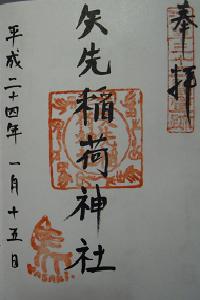 奉拝
矢先稲荷神社
平成二十四年一月十五日
Yasaki